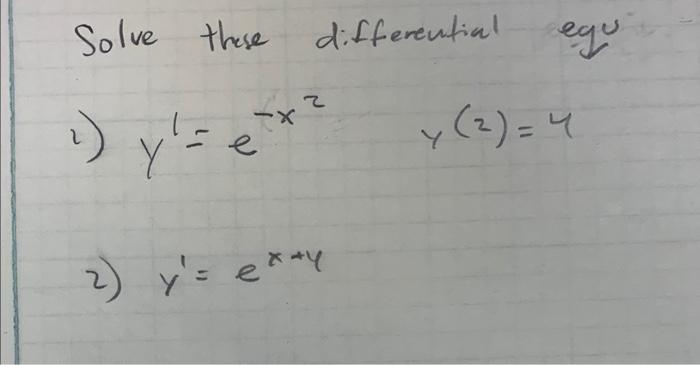 Solve these differential equ
1) y' = e^{-x^2} y(2) = 4
2) y' = e^{x+y}